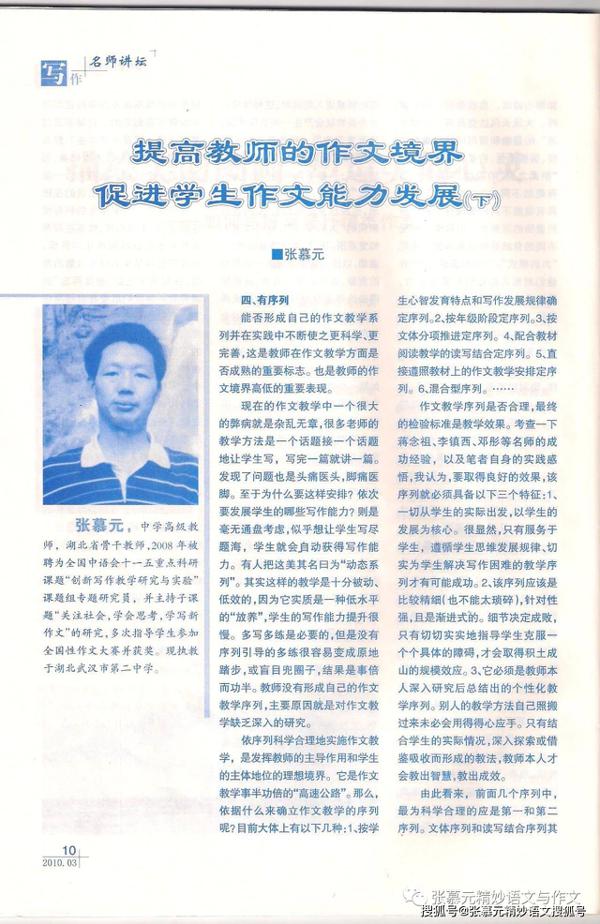 写作
名师讲坛
提高教师的作文境界
促进学生作文能力发展(下)
■张慕元
张慕元，中学高级教
师，湖北省骨干教师,2008年被
聘为全国中语会十一五重点科研
课题“创新写作教学研究与实验”
课题组专题研究员，并主持子课
题“关注社会,学会思考,学写新
作文”的研究,多次指导学生参加
全国性作文大赛并获奖。现执教
于湖北武汉市第二中学。
四、有序列
能否形成自己的作文教学系
列并在实践中不断使之更科学、更
完善,这是教师在作文教学方面是
否成熟的重要标志。也是教师的作
文境界高低的重要表现。
现在的作文教学中一个很大
的弊病就是杂乱无章,很多老师的
教学方法是一个话题接一个话题
地让学生写，写完一篇就讲一篇。
发现了问题也是头痛医头,脚痛医
脚。至于为什么要这样安排？依次
要发展学生的哪些写作能力？则是
毫无通盘考虑,似乎想让学生写尽
题海，学生就会自动获得写作能
力。有人把这美其名曰为“动态系
列”。其实这样的教学是十分被动、
低效的,因为它实质是一种低水平
的“放养”,学生的写作能力提升很
慢。多写多练是必要的,但是没有
序列引导的多练很容易变成原地
踏步,或盲目兜圈子,结果是事倍
而功半。教师没有形成自己的作文
教学序列,主要原因就是对作文教
学缺乏深入的研究。
依序列科学合理地实施作文教
学，是发挥教师的主导作用和学生
的主体地位的理想境界。它是作文
教学事半功倍的“高速公路”。那么,
依据什么来确立作文教学的序列
呢?目前大体上有以下几种:1、按学
生心智发育特点和写作发展规律确
定序列。2、按年级阶段定序列。3、按
文体分项推进定序列。4、配合教材
阅读教学的读写结合定序列。5、直
接遵照教材上的作文教学安排定序
列。6、混合型序列。……
作文教学序列是否合理,最终
的检验标准是教学效果。考查一下
蒋念祖、李镇西、邓彤等名师的成
功经验，以及笔者自身的实践感
悟,我认为,要取得良好的效果,该
序列就必须具备以下三个特征:1、
一切从学生的实际出发,以学生的
发展为核心。很显然,只有服务于
学生，遵循学生思维发展规律、切
实为学生解决写作困难的教学序
列才有可能成功。2、该序列应该是
比较精细(也不能太琐碎),针对性
强,且是渐进式的。细节决定成败,
只有切切实实地指导学生克服一
个个具体的障碍,才会取得积土成
山的规模效应。3、它必须是教师本
人深入研究后总结出的个性化教
学序列。别人的教学方法自己照搬
过来未必会用得得心应手。只有结
合学生的实际情况,深入探索或借
鉴吸收而形成的教法,教师本人才
会教出智慧,教出成效。
由此看来，前面几个序列中，
最为科学合理的应是第一和第二
序列。文体序列和读写结合序列其
10
2010.03
张慕元精妙语文与作文
搜狐号@张慕元精妙语文搜狐号